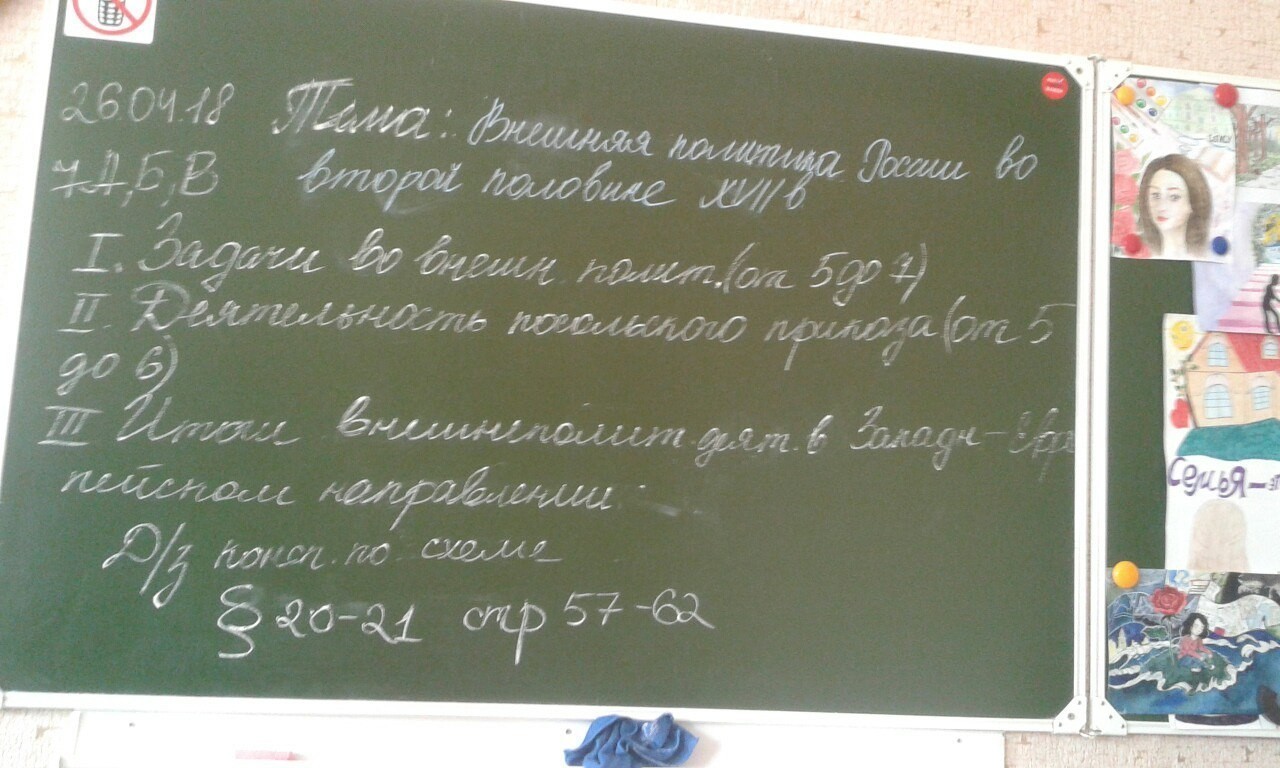 26.04.18 Тема: Внешняя политика России во
7 А, Б, В второй половине XVII в
I. Задачи во внешн. полит. (от 5 до 7)
II. Деятельность посольского приказа (от 5
до 6)
III Итоги внешнеполит. деят. в Западн-Евро
пейском направлении.
Д/з консп. по схеме
§ 20-21 стр 57-62
Семья-